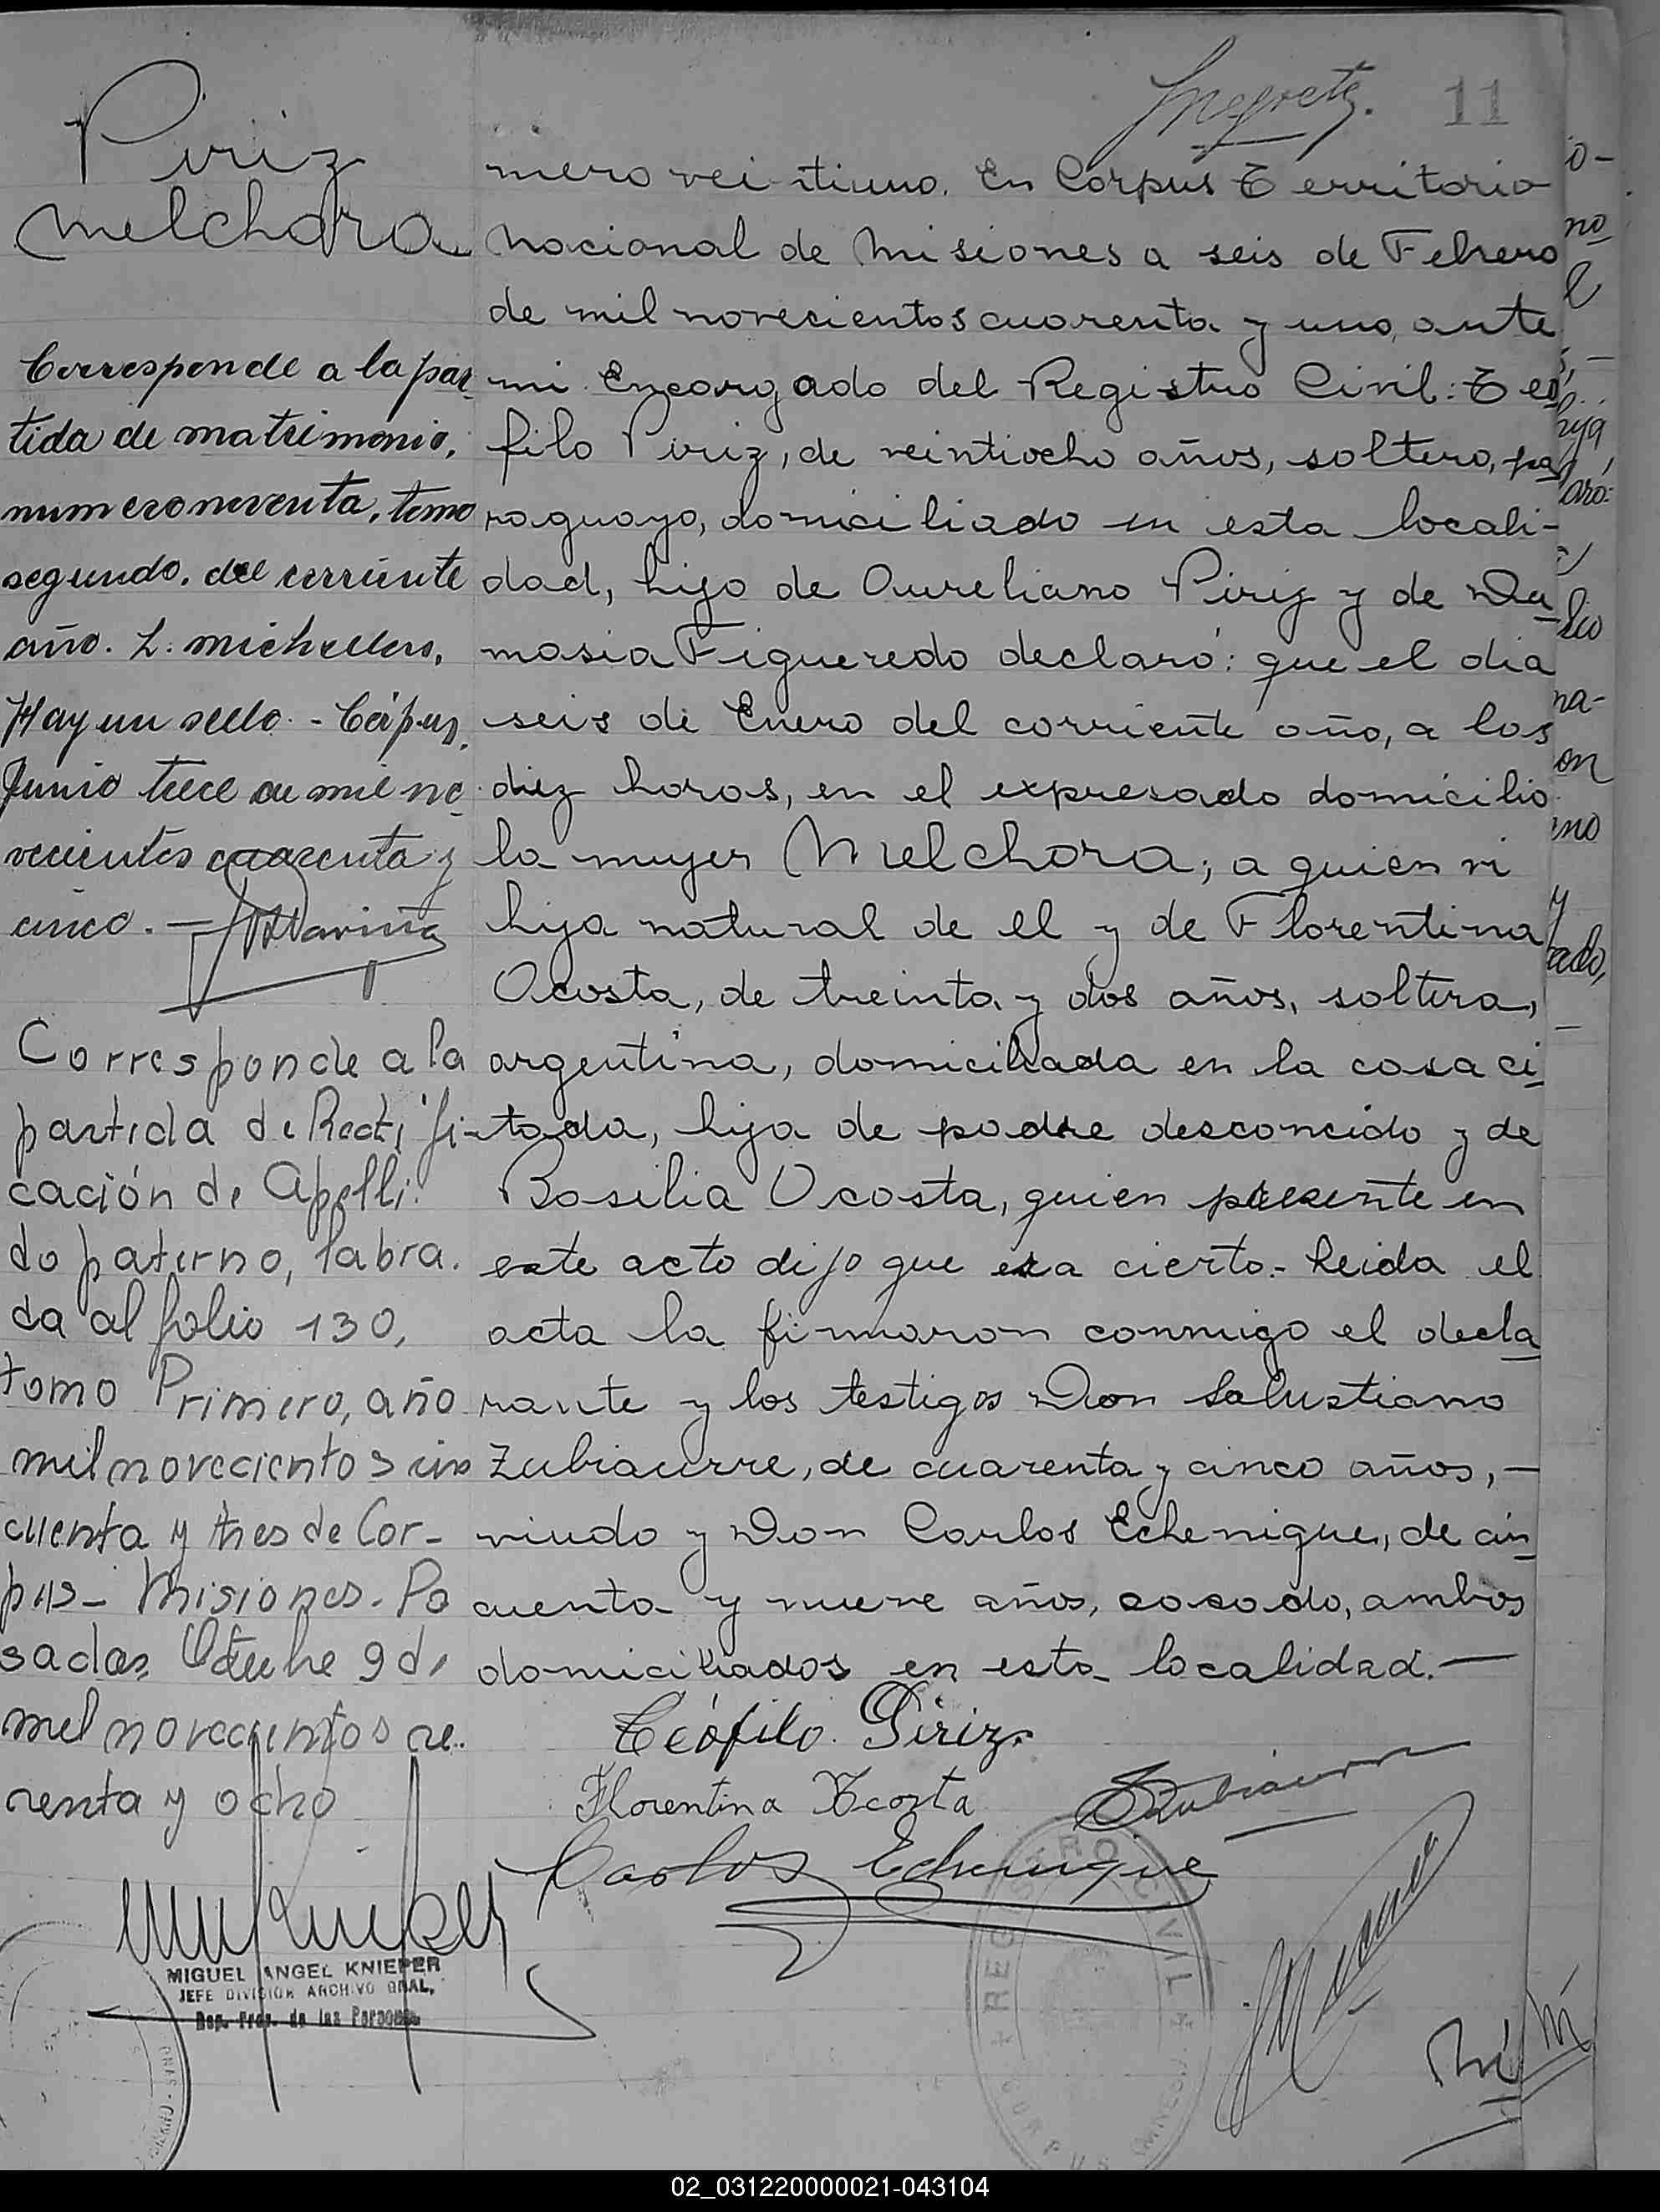 11
Piriz
Melchora
mero veintiuno. En Corpus Territorio
Nacional de Misiones a seis de Febrero
de mil novecientos cuarenta y uno, ante
mi Encargado del Registro Civil: Teo
filo Piriz, de veintiocho años, soltero, pa
raguayo, domiciliado en esta locali-
dad, hijo de Aureliano Piriz y de Da
masia Figueredo declaró: que el dia
seis de Enero del corriente año, a los
diez horas, en el expresado domicilio
la mujer Melchora; a quien vi
hija natural de el y de Florentina
Acosta, de treinta y dos años, soltera,
argentina, domiciliada en la casa ci
tada, hija de padre desconocido y de
Basilia Acosta, quien presente en
este acto dijo que era cierto.- Leida el
acta la firmaron conmigo el decla
rante y los testigos Don Salustiano
Zubiaurre, de cuarenta y cinco años, -
viudo y Don Carlos Echenique, de cin
cuenta y nueve años, casado, ambos
domiciliados en esta localidad. -
Teófilo Piriz
Florentina Acosta
SZubiaurre
Carlos Echenique
Corresponde a la par
tida de matrimonio,
numero noventa, tomo
segundo, del corriente
año. L.
Hay un sello. - Córpus,
Junio trece de mil no
vecientos cuarenta y
cinco. -
Corresponde a la
partida de Rectifi-
cación de Apelli
do paterno, labra.
da al folio 130,
tomo Primero, año
mil novecientos cin
cuenta y tres de Cor-
pus - Misiones. Po
sadas, Octubre 9 de
mil novecientos
y ocho
MIGUEL ANGEL KNIEPER
JEFE DIVISION ARCHIVO GRAL.
Reg. Prov. de las Personas
REGISTRO CIVIL
CORPUS
02_031220000021-043104